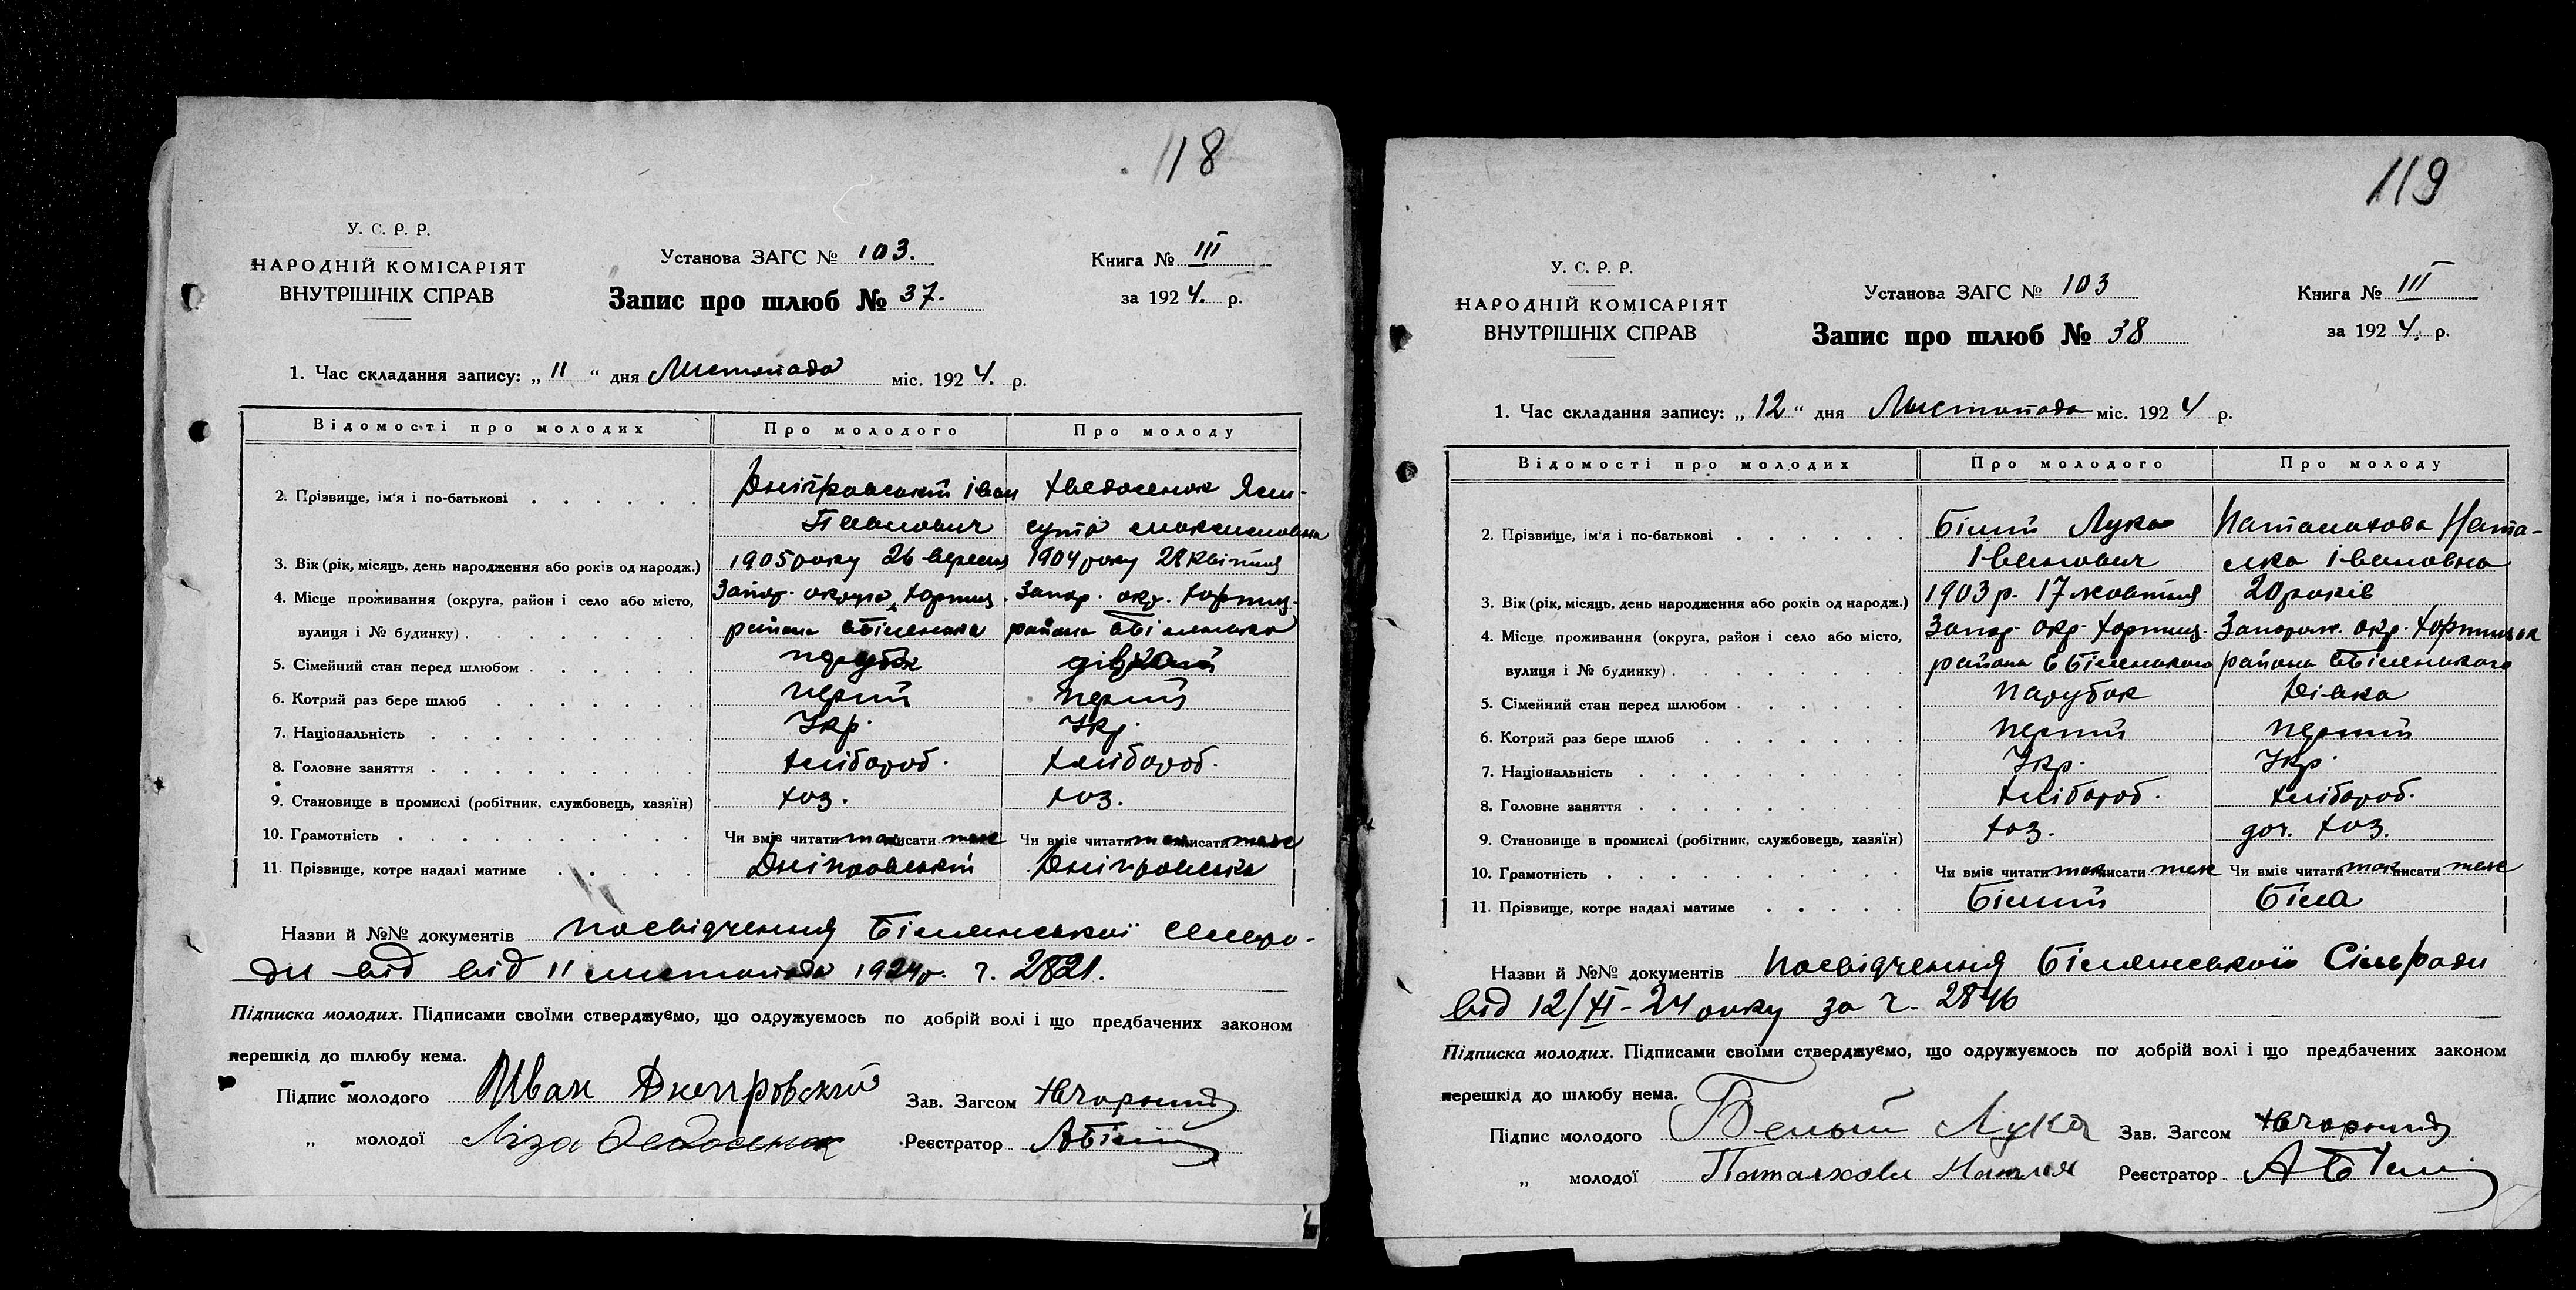 118
У. С. Р. Р.
НАРОДНІЙ КОМІСАРІЯТ
ВНУТРІШНІХ СПРАВ
Установа ЗАГС № 103.
Запис про шлюб № 37.
Книга № III
за 1924. р.
1. Час складання запису: „ 11 “ дня Листопада міс. 1924. р.
Відомості про молодих Про молодого Про молоду
2. Прізвище, ім'я і по-батькові Дніпровський Іван Хведосенок Єли-
Іванович сута Максимовна
3. Вік (рік, місяць, день народження або років од народж.) 1905 року 26 вересня 1904 року 28 Квітня
4. Місце проживання (округа, район і село або місто, Запор. округа, Хортиц. Запор. окр. Хортиц.
вулиця і № будинку) района района
5. Сімейний стан перед шлюбом парубок дівка
6. Котрий раз бере шлюб перший перший
7. Національність Укр. Укр.
8. Головне заняття хлібороб. хлібороб.
9. Становище в промислі (робітник, службовець, хазяїн) хоз. хоз.
10. Грамотність Чи вміє читати так писати теж Чи вміє читати так писати теж
11. Прізвище, котре надалі матиме Дніпровський Дніпровська
Назви й №№ документів посвідчення Біленської сельра-
ди від від 11 листопада 1924 р. ч. 2821.
Підписка молодих. Підписами своїми стверджуємо, що одружуємось по добрій волі і що предбачених законом
перешкід до шлюбу нема.
Підпис молодого Иван Днепровский Зав. Загсом
„ молодої Ліза Федосенок Реєстратор АБілий
119
У. С. Р. Р.
НАРОДНІЙ КОМІСАРІЯТ
ВНУТРІШНІХ СПРАВ
Установа ЗАГС № 103
Запис про шлюб № 38
Книга № III
за 1924. р.
1. Час складання запису: „ 12 “ дня Листопада міс. 1924 р.
Відомості про молодих Про молодого Про молоду
2. Прізвище, ім'я і по-батькові Білий Лука Паталахова Ната-
Іванович лка Івановна
3. Вік (рік, місяць, день народження або років од народж.) 1903 р. 17 жовтня 20 років
4. Місце проживання (округа, район і село або місто, Запор. окр. Хортиц. Запорож. окр. Хортицьк
вулиця і № будинку) района с Біленького района сБіленького
5. Сімейний стан перед шлюбом парубок дівка
6. Котрий раз бере шлюб перший перший
7. Національність Укр. Укр.
8. Головне заняття хлібороб. хлібороб.
9. Становище в промислі (робітник, службовець, хазяїн) хоз. доч. хоз.
10. Грамотність Чи вміє читати так писати теж Чи вміє читати так писати теж
11. Прізвище, котре надалі матиме Білий Біла
Назви й №№ документів посвідчення Біленської Сільради
від 12/XI-24 року за ч. 2846
Підписка молодих. Підписами своїми стверджуємо, що одружуємось по добрій волі і що предбачених законом
перешкід до шлюбу нема.
Підпис молодого Белый Лука Зав. Загсом
„ молодої Паталахова Реєстратор АБілий